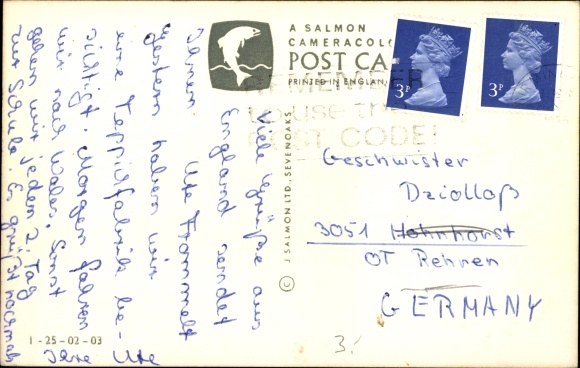 A SALMON
CAMERACOLO
POST CA
PRINTED IN ENGLAN
3P
3P
REMEMBER
to use the
POST CODE!
J SALMON LTD., SEVENOAKS ©
Viele Grüße aus
England sendet
Ihnen Ute Frommelt
Gestern haben wir
eine Teppichfabrik be-
sichtigt. Morgen fahren
wir nach Wales. Sonst
gehen wir jeden 2. Tag
zur Schule. Es grüßt nochmals
Ihre Ute
1-25-02-03
Geschwister
Dziolloß
3051 Hohnhorst
OT Rehren
GERMANY
3.-